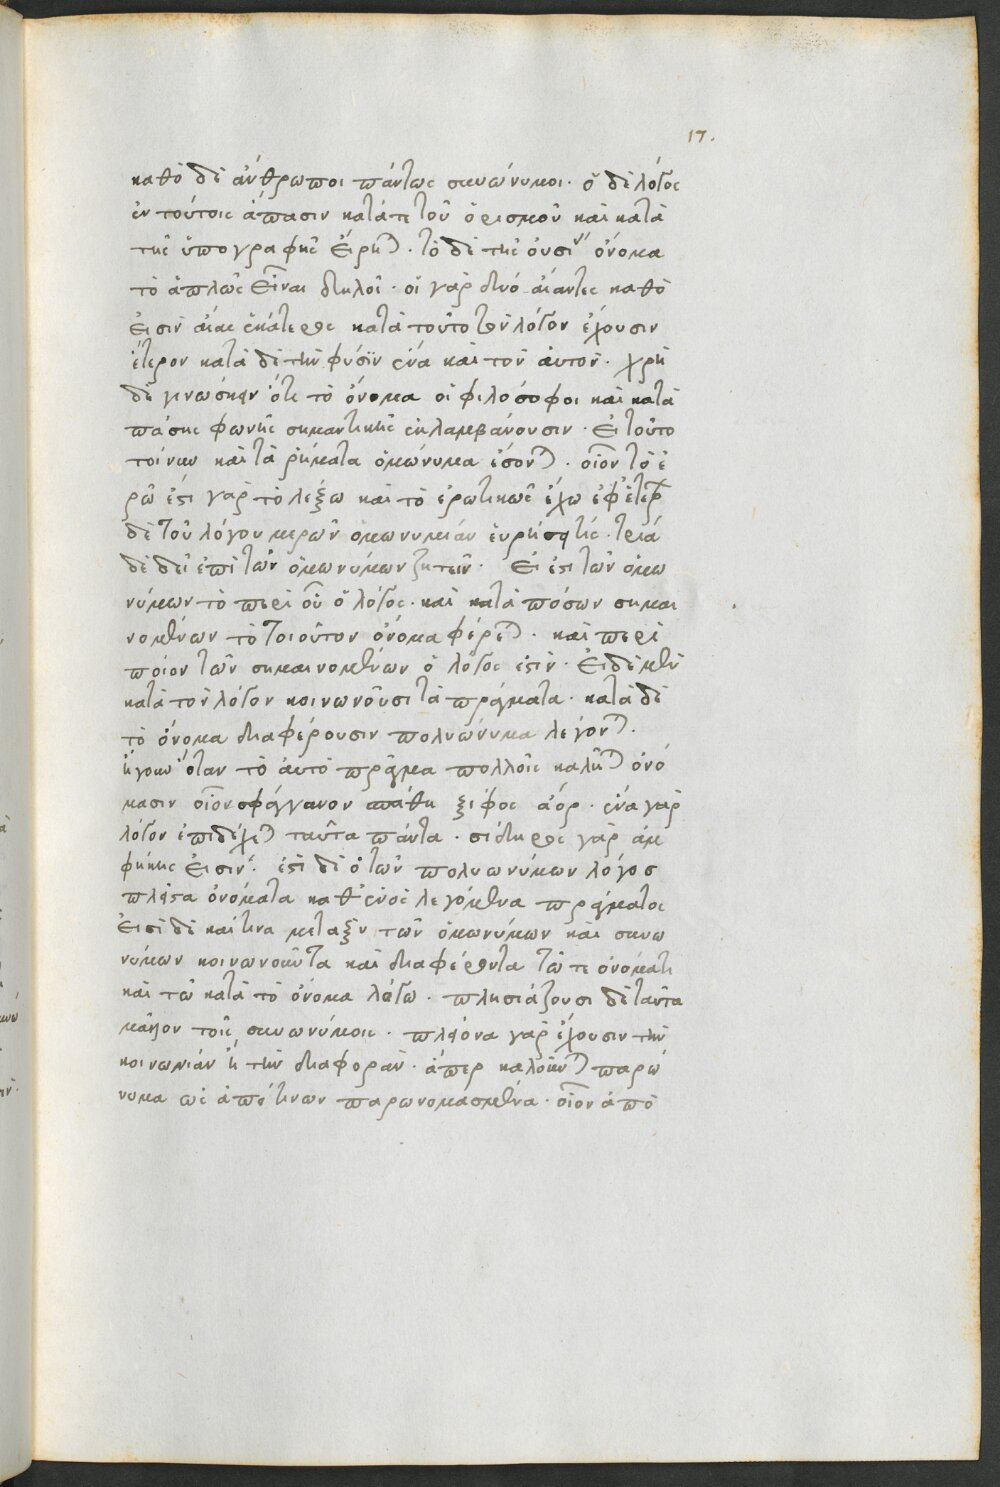 17.
καθὸ δὲ ἄνθρωποι πάντως συνώνυμοι· ὁ δὲ λόγος
ἐν τούτοις ἅπασιν κατά τε τοῦ ὁρισμοῦ καὶ κατὰ
τῆς ὑπογραφῆς εἴρηται. τὸ δὲ τῆς οὐσίας ὄνομα
τὸ ἁπλῶς εἶναι δηλοῖ· οἱ γὰρ δύο αἴαντες καθὸ
εἰσὶν αἴας ἑκάτερος κατὰ τοῦτο τὸν λόγον ἔχουσιν
ἕτερον κατὰ δὲ τὴν φύσϊν ἕνα καὶ τὸν αὐτόν· χρὴ
δὲ γινώσκειν ὅτι τὸ ὄνομα οἱ φιλόσοφοι καὶ κατὰ
πάσης φωνῆς σημαντικῆς ἐκλαμβάνουσιν· Εἰ τοῦτο
τοίνυν καὶ τὰ ῥήματα ὁμώνυμα ἔσονται· οἷον τὸ ἐ
ρῶ ἔστι γὰρ τὸ λέξω καὶ τὸ ἐρωτικῶς ἔχω ἐφ' ἑτέρων
δὲ τοῦ λόγου μερῶν ὁμωνυμίαν εὑρήσει τίς· τρία
δὲ δεῖ ἐπὶ τῶν ὁμωνύμων ζητεῖν· Εἰ ἔστι τῶν ὁμω
νύμων τὸ περὶ οὗ ὁ λόγος· καὶ κατὰ πόσων σημαι
νομένων τὸ τοιοῦτον ὄνομα φέρεται· καὶ περὶ
ποίου τῶν σημαινομένων ὁ λόγος ἐστίν· Εἰ δὲ μὲν
κατὰ τὸν λόγον κοινωνοῦσι τὰ πράγματα· κατὰ δὲ
τὸ ὄνομα διαφέρουσιν πολυώνυμα λέγονται.
ἤγουν ὅταν τὸ αὐτὸ πρᾶγμα πολλοῖς καλῆται ὀνό
μασιν οἷον σφάγγανον σπάθη ξίφος ἄορ· ἕνα γὰρ
λόγον ἐπιδέχεται ταῦτα πάντα· σίδηρος γὰρ ἀμ
φήκης εἰσίν· ἔστι δὲ ὁ τῶν πολυωνύμων λόγος
πλεῖστα ὀνόματα καθ' ἑνὸς λεγόμενα πράγματος
Εἰσὶ δὲ καί τινα μεταξὺ τῶν ὁμωνύμων καὶ συνω
νύμων κοινωνοῦντα καὶ διαφέροντα τῶ τε ὀνόματι
καὶ τῶ κατὰ τὸ ὄνομα λόγω· πλησιάζουσι δὲ ταῦτα
μᾶλλον τοῖς συνωνύμοις· πλείονα γὰρ ἔχουσιν τὴν
κοινωνίαν ἢ τὴν διαφοράν· ἅπερ καλοῦνται παρώ
νυμα ὡς ἀπό τινων παρωνομασμένα· οἷον ἀπὸ